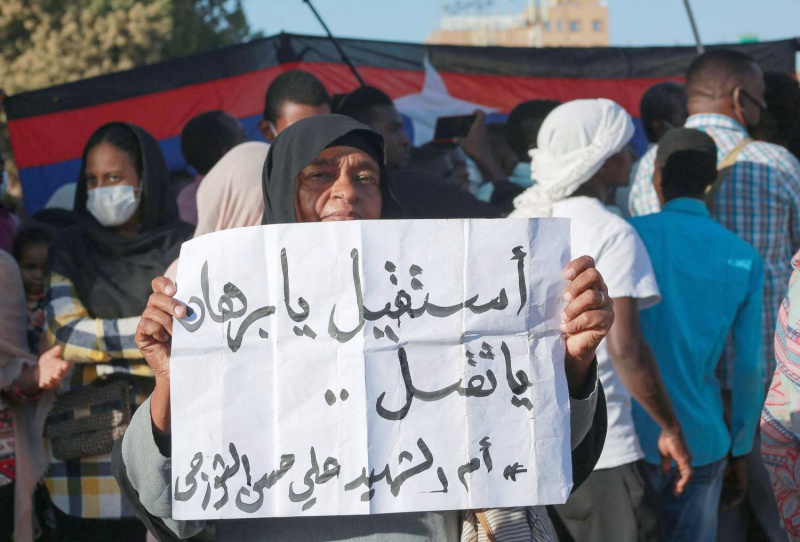 أستقيل يا برهان
يا ثقيل ..
* أم الشهيد علي حسن